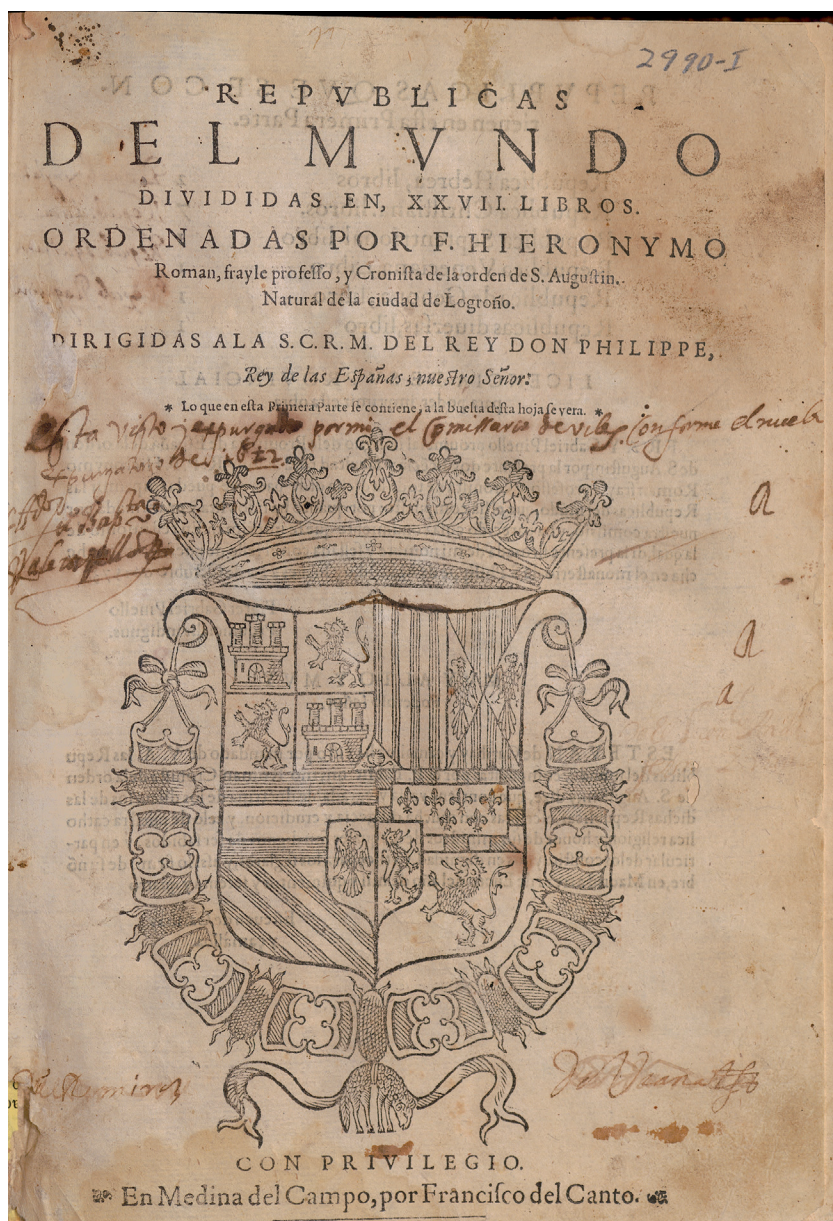 2990-I
REPVBLICAS
DEL MVNDO
DIVIDIDAS EN, XXVII. LIBROS.
ORDENADAS POR F. HIERONYMO
Roman, frayle profeſſo, y Croniſta de la orden de S. Auguſtin.
Natural de la ciudad de Logroño.
DIRIGIDAS ALA S.C.R.M. DEL REY DON PHILIPPE,
Rey de las Eſpañas, nueſtro Señor.
* Lo que en eſta Primera Parte ſe contiene, a la buelta deſta hoja ſe vera. *
Esta visto y expurgado por mi el Comissario de conforme el nuebo
expurgatorio de 1612
a
a
a
CON PRIVILEGIO.
En Medina del Campo, por Franciſco del Canto.